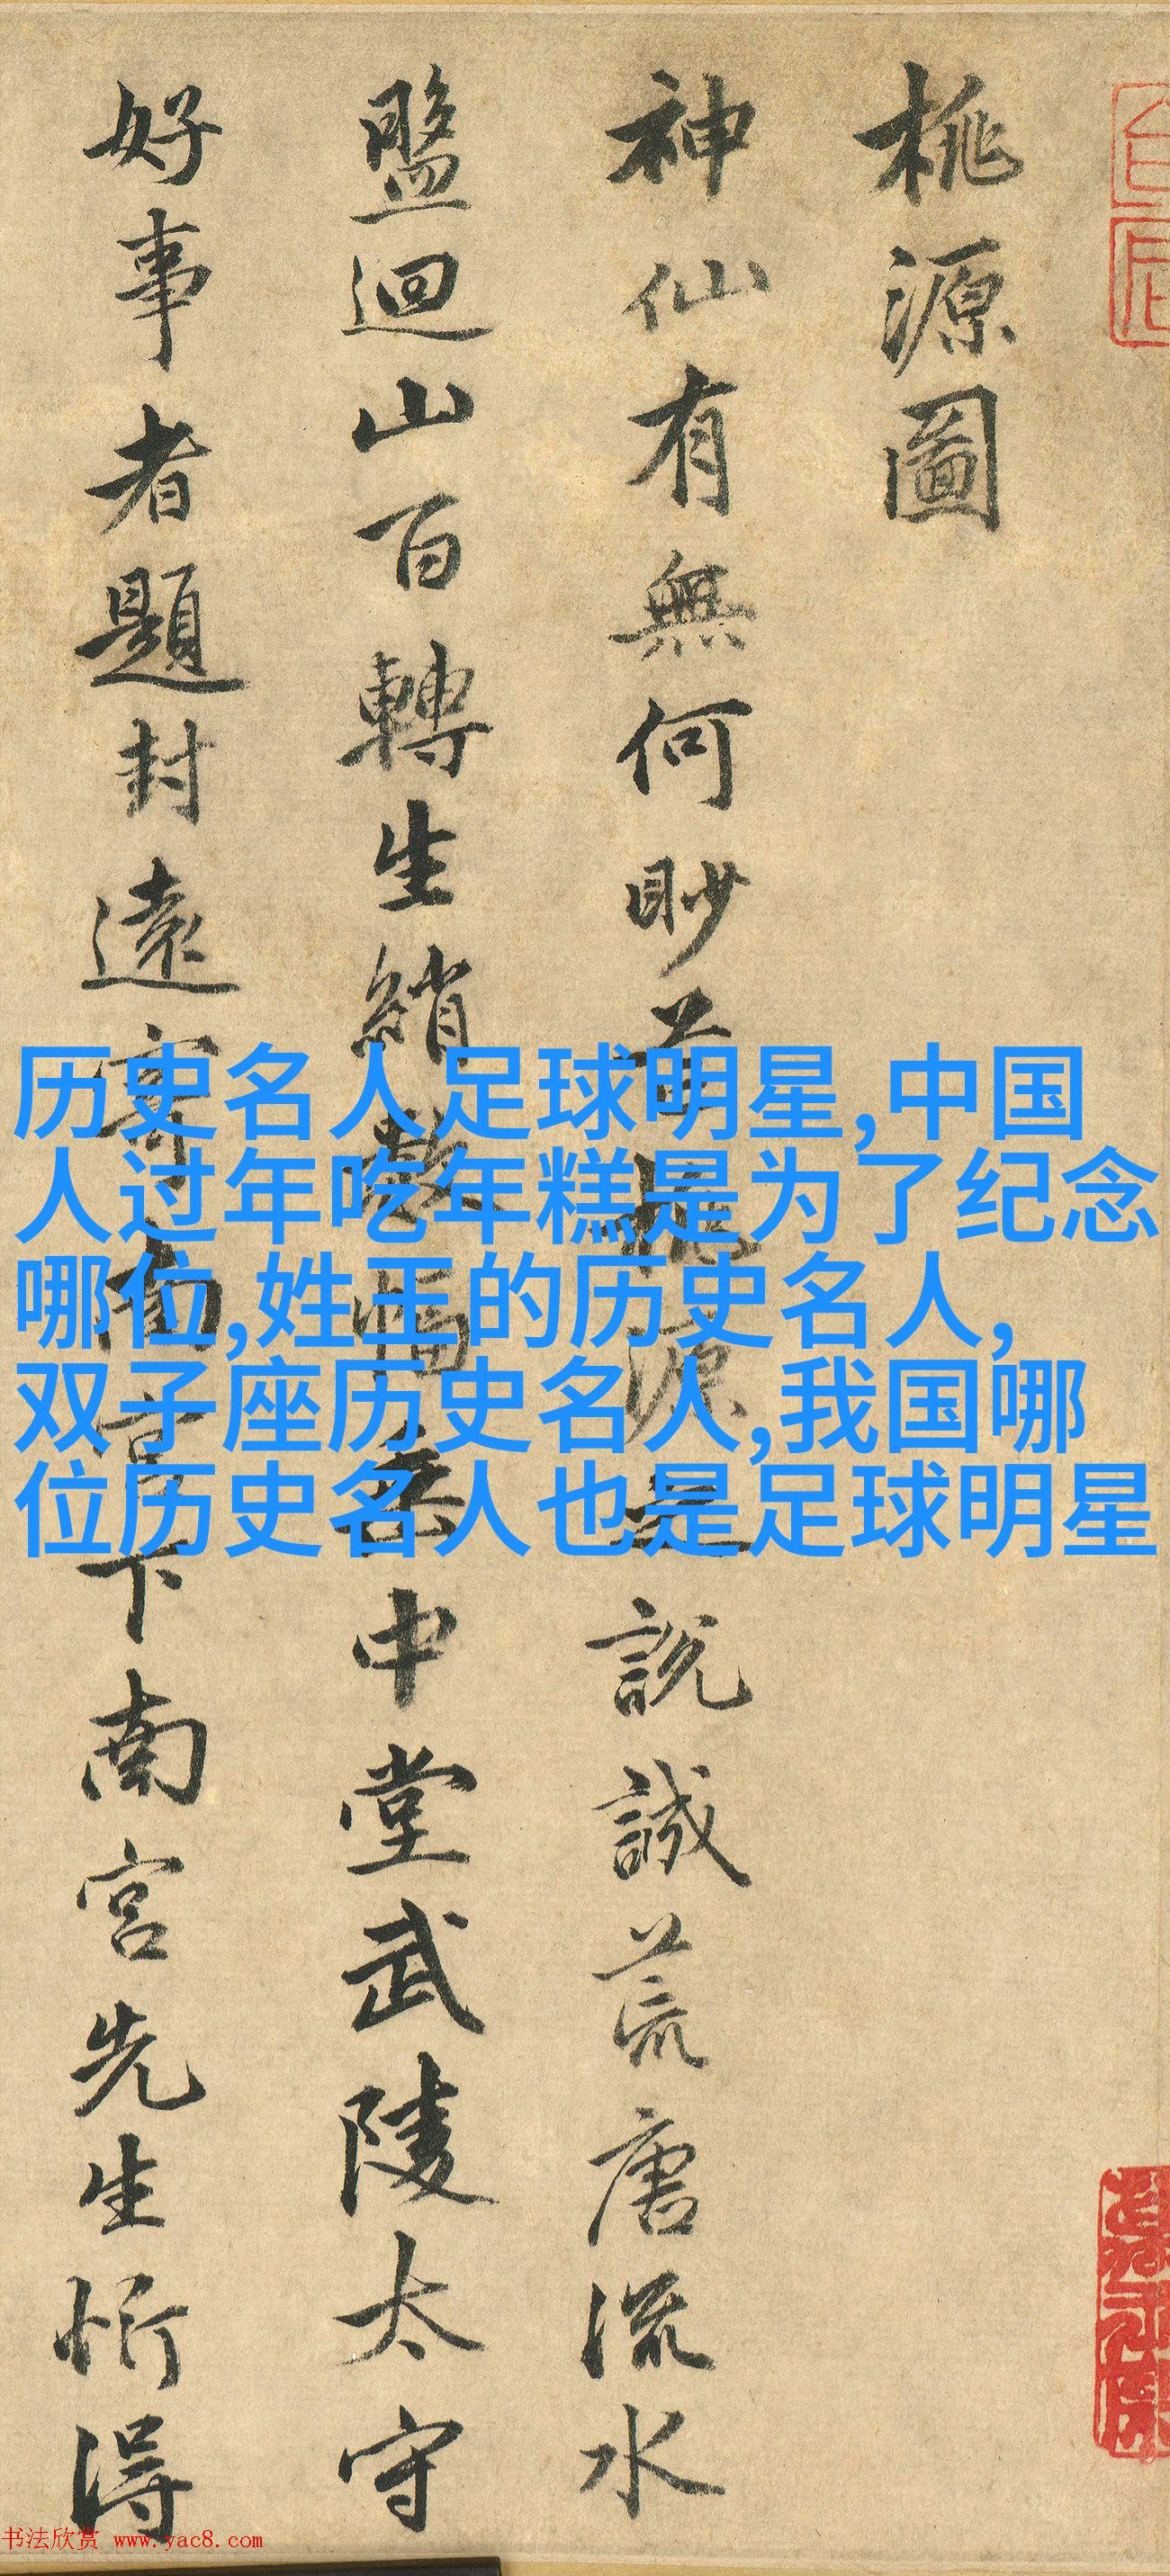 桃源圖
神仙有無何眇芒桃源之說誠荒唐流水
盤迴山百轉生綃數幅垂中堂武陵太守
好事者題封遠寄南宫下南宫先生忻得
历史名人足球明星,中国
人过年吃年糕是为了纪念
哪位,姓王的历史名人,
双子座历史名人,我国哪
位历史名人也是足球明星
书法欣赏 www.yac8.com